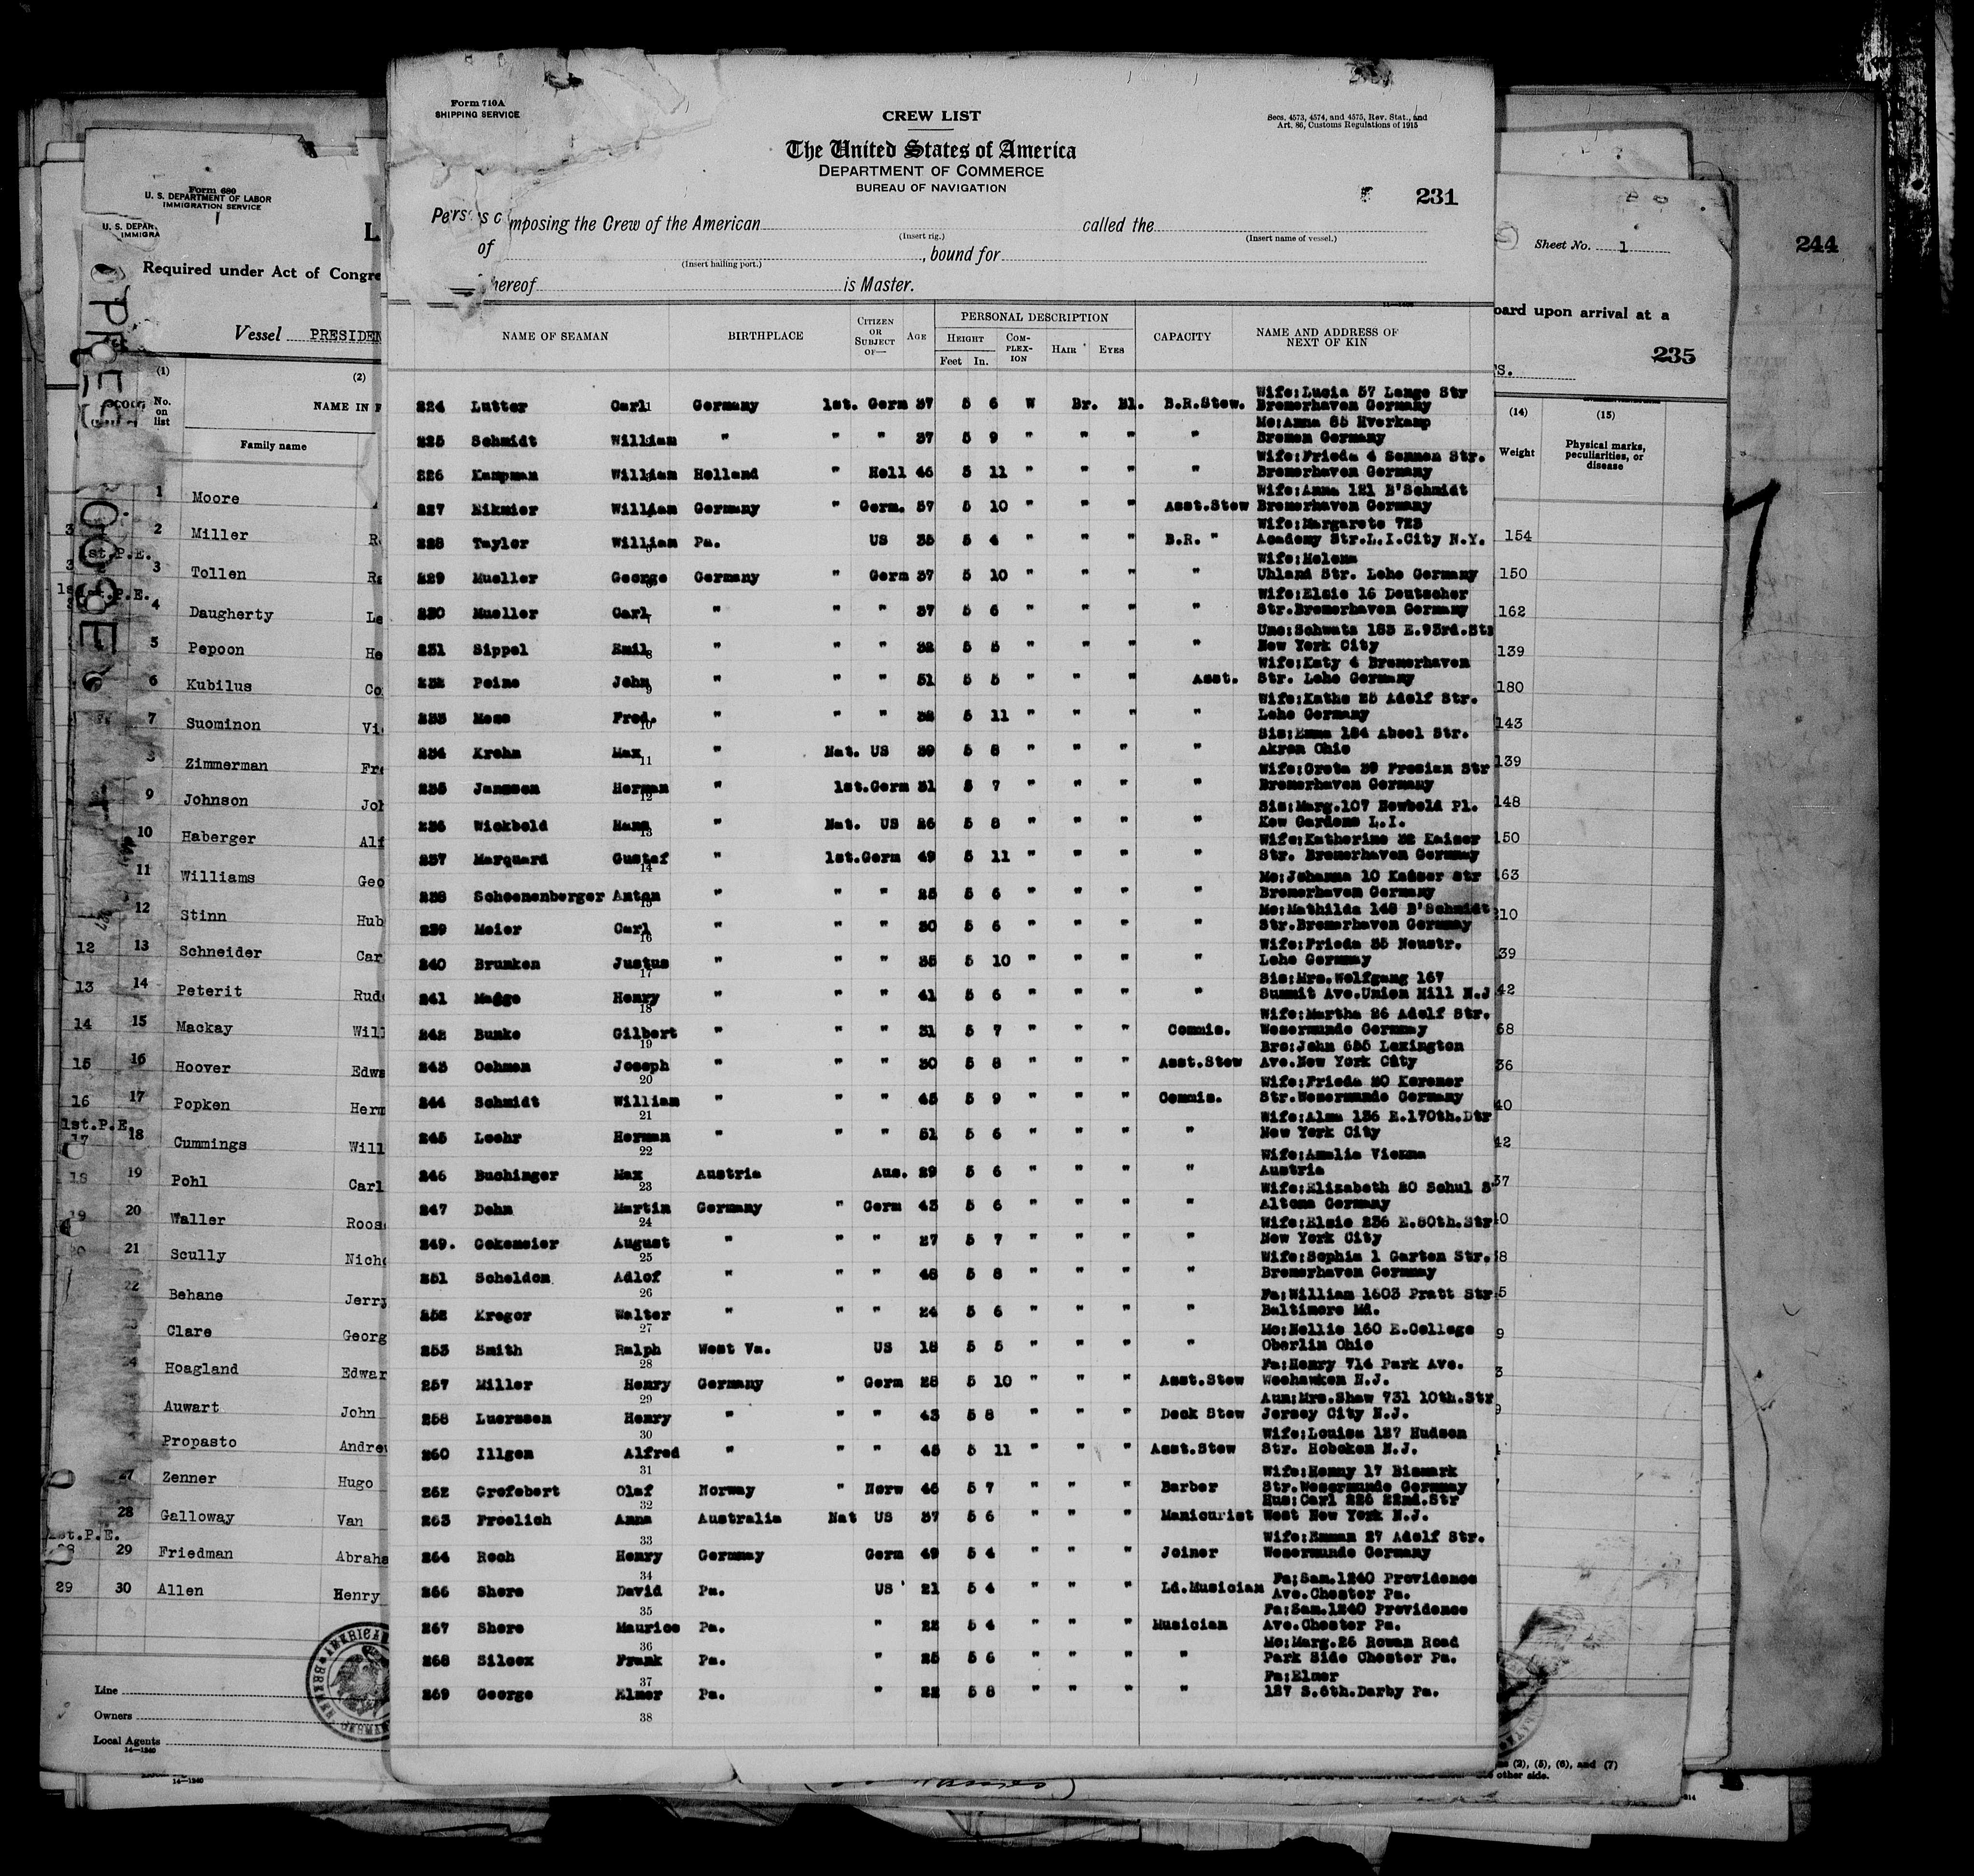 Form 710A
SHIPPING SERVICE
CREW LIST
Secs. 4573, 4574, and 4575, Rev. Stat., and
Art. 86, Customs Regulations of 1915
The United States of America
DEPARTMENT OF COMMERCE
BUREAU OF NAVIGATION
231
mposing the Crew of the American called the
(Insert rig.) (Insert name of vessel.)
of , bound for
(Insert hailing port.)
hereof is Master.
NAME OF SEAMAN BIRTHPLACE CITIZEN OR SUBJECT OF— AGE PERSONAL DESCRIPTION CAPACITY NAME AND ADDRESS OF NEXT OF KIN
HEIGHT COM-PLEX-ION HAIR EYES
Feet In.
224 Lutter Carl 1 Germany 1st. Germ 37 5 6 W Br. Bl. B.R.Stew. Wife:Lucia 57 Lange Str Bremerhaven Germany
225 Schmidt William " " " 37 5 9 " " " " Mo:Anna 85 Hverkamp Bremen Germany
226 Kampman William Holland " Holl 46 5 11 " " " " Wife:Frieda 4 Sonnen Str. Bremerhaven Germany
227 Eikmier William Germany " Germ. 37 5 10 " " " Asst.Stew Wife:Anna 121 B'Schmidt Bremerhaven Germany
228 Taylor William Pa. US 35 5 4 " " " B.R. " Wife:Margarete 723 Academy Str.L.I.City N.Y.
229 Mueller George Germany " Germ 37 5 10 " " " " Wife:Helena Uhland Str. Lehe Germany
230 Mueller Carl 7 " " " 37 5 6 " " " " Wife:Elsie 16 Deutscher Str.Bremerhaven Germany
231 Sippel Emil 8 " " " 32 5 5 " " " " Unc:Schwatz 183 E.93rd.Str New York City
232 Peine John 9 " " " 51 5 5 " " " Asst. Wife:Katy 4 Bremerhaven Str. Lehe Germany
233 Mess Fred. 10 " " " 32 5 11 " " " " Wife:Kathe 25 Adolf Str. Lehe Germany
234 Krehn Max 11 " Nat. US 39 5 8 " " " " Sis:Emma 184 Abeel Str. Akron Ohio
235 Janssen Herman 12 " 1st.Germ 31 5 7 " " " " Wife:Greta 39 Fresian Str Bremerhaven Germany
236 Wickbold Hans 13 " Nat. US 26 5 8 " " " " Sis:Marg.107 Newbold Pl. Kew Gardens L.I.
237 Marquard Gustaf 14 " 1st.Germ 49 5 11 " " " " Wife:Katherine 32 Kaiser Str. Bremerhaven Germany
238 Schoenenberger Anton 15 " " " 25 5 6 " " " " Mo:Johanna 10 Kaiser Str Bremerhaven Germany
239 Meier Carl 16 " " " 30 5 6 " " " " Mo:Mathilda 148 B'Schmidt Str.Bremerhaven Germany
240 Brunken Justus 17 " " " 35 5 10 " " " " Wife:Frieda 35 Neustr. Lehe Germany
241 Madge Henry 18 " " " 41 5 6 " " " " Sis:Mrs.Wolfgang 167 Summit Ave.Union Hill N.J
242 Bunke Gilbert 19 " " " 31 5 7 " " " Commis. Wife:Martha 26 Adolf Str. Wesermunde Germany
243 Oehmen Joseph 20 " " " 30 5 8 " " " Asst.Stew Bro:John 655 Lexington Ave.New York City
244 Schmidt William 21 " " " 45 5 9 " " " Commis. Wife:Frieda 20 Kerener Str.Wesermunde Germany
245 Loehr Herman 22 " " " 51 5 6 " " " " Wife:Alma 136 E.170th.Dtr New York City
246 Buchinger Max 23 Austria Aus. 29 5 6 " " " " Wife:Amalia Vienna Austria
247 Dehn Martin 24 Germany " Germ 43 5 6 " " " " Wife:Elizabeth 20 Schul S Altona Germany
249. Gekemeier August 25 " " " 27 5 7 " " " " Wife:Elsie 236 E.80th.Str New York City
251 Scheldon Adlof 26 " " " 48 5 8 " " " " Wife:Sophia 1 Garten Str. Bremerhaven Germany
252 Kroger Walter 27 " " " 24 5 6 " " " " Fa;William 1603 Pratt Str Baltimore Md.
253 Smith Ralph 28 West Va. US 18 5 5 " " " " Mo:Nellie 160 E.College Oberlin Ohio
257 Miller Henry 29 Germany " Germ 28 5 10 " " " Asst.Stew Fa:Henry 714 Park Ave. Weehawken N.J.
258 Luerssen Henry 30 " " " 43 5 8 " " " Deck Stew Aun:Mrs.Shaw 731 10th.Str Jersey City N.J.
260 Illgen Alfred 31 " " " 45 5 11 " " " Asst.Stew Wife:Louisa 127 Hudson Str. Hoboken N.J.
262 Grefebert Olaf 32 Norway " Norw 46 5 7 " " " Barber Wife:Henny 17 Bismark Str.Wesermunde Germany
263 Froelich Anna 33 Australia Nat US 37 5 6 " " " Manicurist Hus:Carl 226 22nd.Str West New York N.J.
264 Rech Henry 34 Germany Germ 49 5 4 " " " Joiner Wife:Emman 27 Adolf Str. Wesermunde Germany
266 Shore David 35 Pa. US 21 5 4 " " " Ld.Musician Fa;Sam.1240 Providence Ave.Chester Pa.
267 Shore Maurice 36 Pa. " 22 5 4 " " " Musician Fa;Sam.1240 Providence Ave.Chester Pa.
268 Silcox Frank 37 Pa. " 25 5 6 " " " " Mo:Marg.26 Rowan Road Park Side Chester Pa.
269 George Elmer 38 Pa. " 22 5 8 " " " " Fa:Elmer 127 S.6th.Darby Pa.
Form 680
U. S. DEPARTMENT OF LABOR
IMMIGRATION SERVICE
U. S. DEPAR
IMMIGRA
L
Required under Act of Congre
Vessel PRESIDEN
PRES ROOSE
(1) (2)
No. on list
NAME IN F
Family name
1 Moore
2 Miller R
1st.P.E.
3 Tollen Ra
4 Daugherty Le
5 Pepoon He
6 Kubilus Co
7 Suominon Vi
Zimmerman Fr
9 Johnson Joh
10 Haberger Alf
11 Williams Geo
12 Stinn Hub
12 13 Schneider Car
13 14 Peterit Rud
14 15 Mackay Will
15 16 Hoover Edwa
16 17 Popken Herm
1st.P.E.
17 18 Cummings Will
18 19 Pohl Carl
19 20 Waller Roos
20 21 Scully Nicho
22 Behane Jerry
Clare Georg
24 Hoagland Edwar
Auwart John
Propasto Andre
27 Zenner Hugo
28 Galloway Van
1st.P.E.
28 29 Friedman Abraha
29 30 Allen Henry
Line
Owners
Local Agents
14—1240
14—1240
AMERICAN
BREMEN GERMAN
Sheet No. 1
244
oard upon arrival at a
235
(14) (15)
Weight Physical marks, peculiarities, or disease
154
150
162
139
180
143
139
148
150
163
210
(2), (5), (6), and (7)
other side.